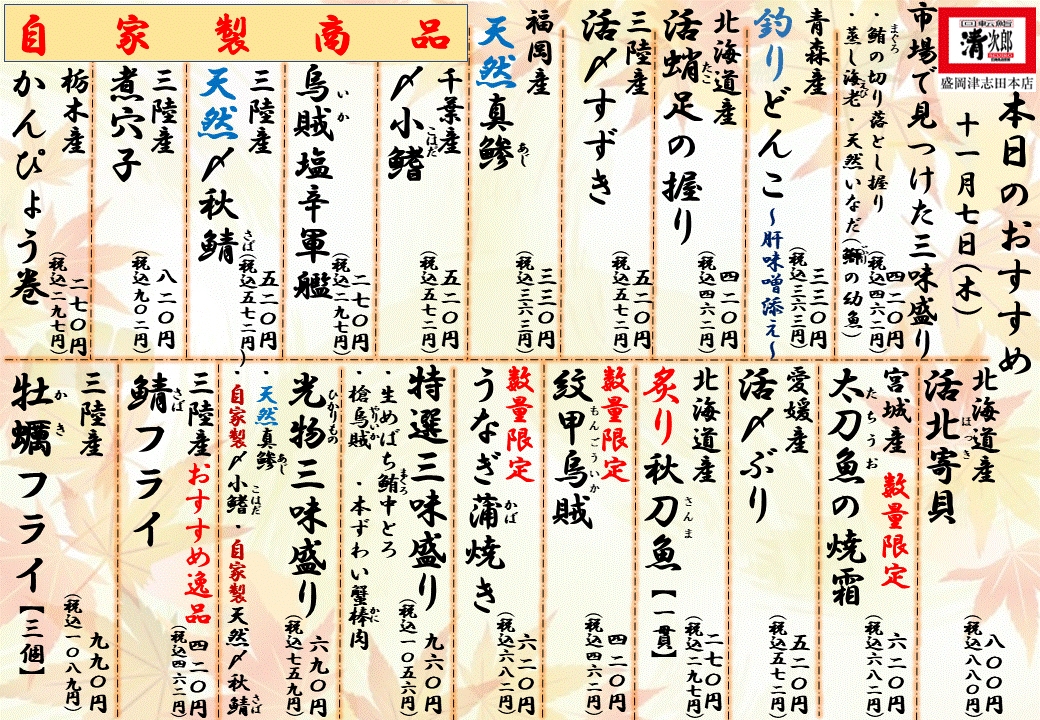 回転鮨
清次郎
盛岡津志田本店
本日のおすすめ
十一月七日(木)
市場で見つけた三味盛り
・鮪の切り落とし握り
まぐろ
・蒸し海老・天然いなだ(鰤の幼魚)
えび
四二〇円
(税込四六二円)
青森産
釣りどんこ~肝味噌添え~
三三〇円
(税込三六三円)
北海道産
活蛸足の握り
たこ
四二〇円
(税込四六二円)
三陸産
活〆すずき
五二〇円
(税込五七二円)
福岡産
天然真鯵
あじ
三三〇円
(税込三六三円)
自家製商品
千葉産
〆小鰭
こはだ
五二〇円
(税込五七二円)
烏賊塩辛軍艦
いか
二七〇円
(税込二九七円)
三陸産
天然〆秋鯖
さば
五二〇円
(税込五七二円)
三陸産
煮穴子
八二〇円
(税込九〇二円)
栃木産
かんぴょう巻
二七〇円
(税込二九七円)
北海道産
活北寄貝
ほっき
八〇〇円
(税込八八〇円)
宮城産
数量限定
太刀魚の焼霜
たちうお
六二〇円
(税込六八二円)
愛媛産
活〆ぶり
五二〇円
(税込五七二円)
北海道産
炙り秋刀魚【一貫】
さんま
二七〇円
(税込二九七円)
数量限定
紋甲烏賊
もんごういか
四二〇円
(税込四六二円)
数量限定
うなぎ蒲焼き
かば
六二〇円
(税込六八二円)
特選三味盛り
・生めばち鮪中とろ
まぐろ
・槍烏賊・本ずわい蟹棒肉
やりいか
かに
九六〇円
(税込一〇五六円)
光物三味盛り
ひかりもの
・天然真鯵
あじ
・自家製〆小鰭・自家製天然〆秋鯖
こはだ
さば
六九〇円
(税込七五九円)
三陸産おすすめ逸品
鯖フライ
さば
四二〇円
(税込四六二円)
三陸産
牡蠣フライ【三個】
かき
九九〇円
(税込一〇八九円)